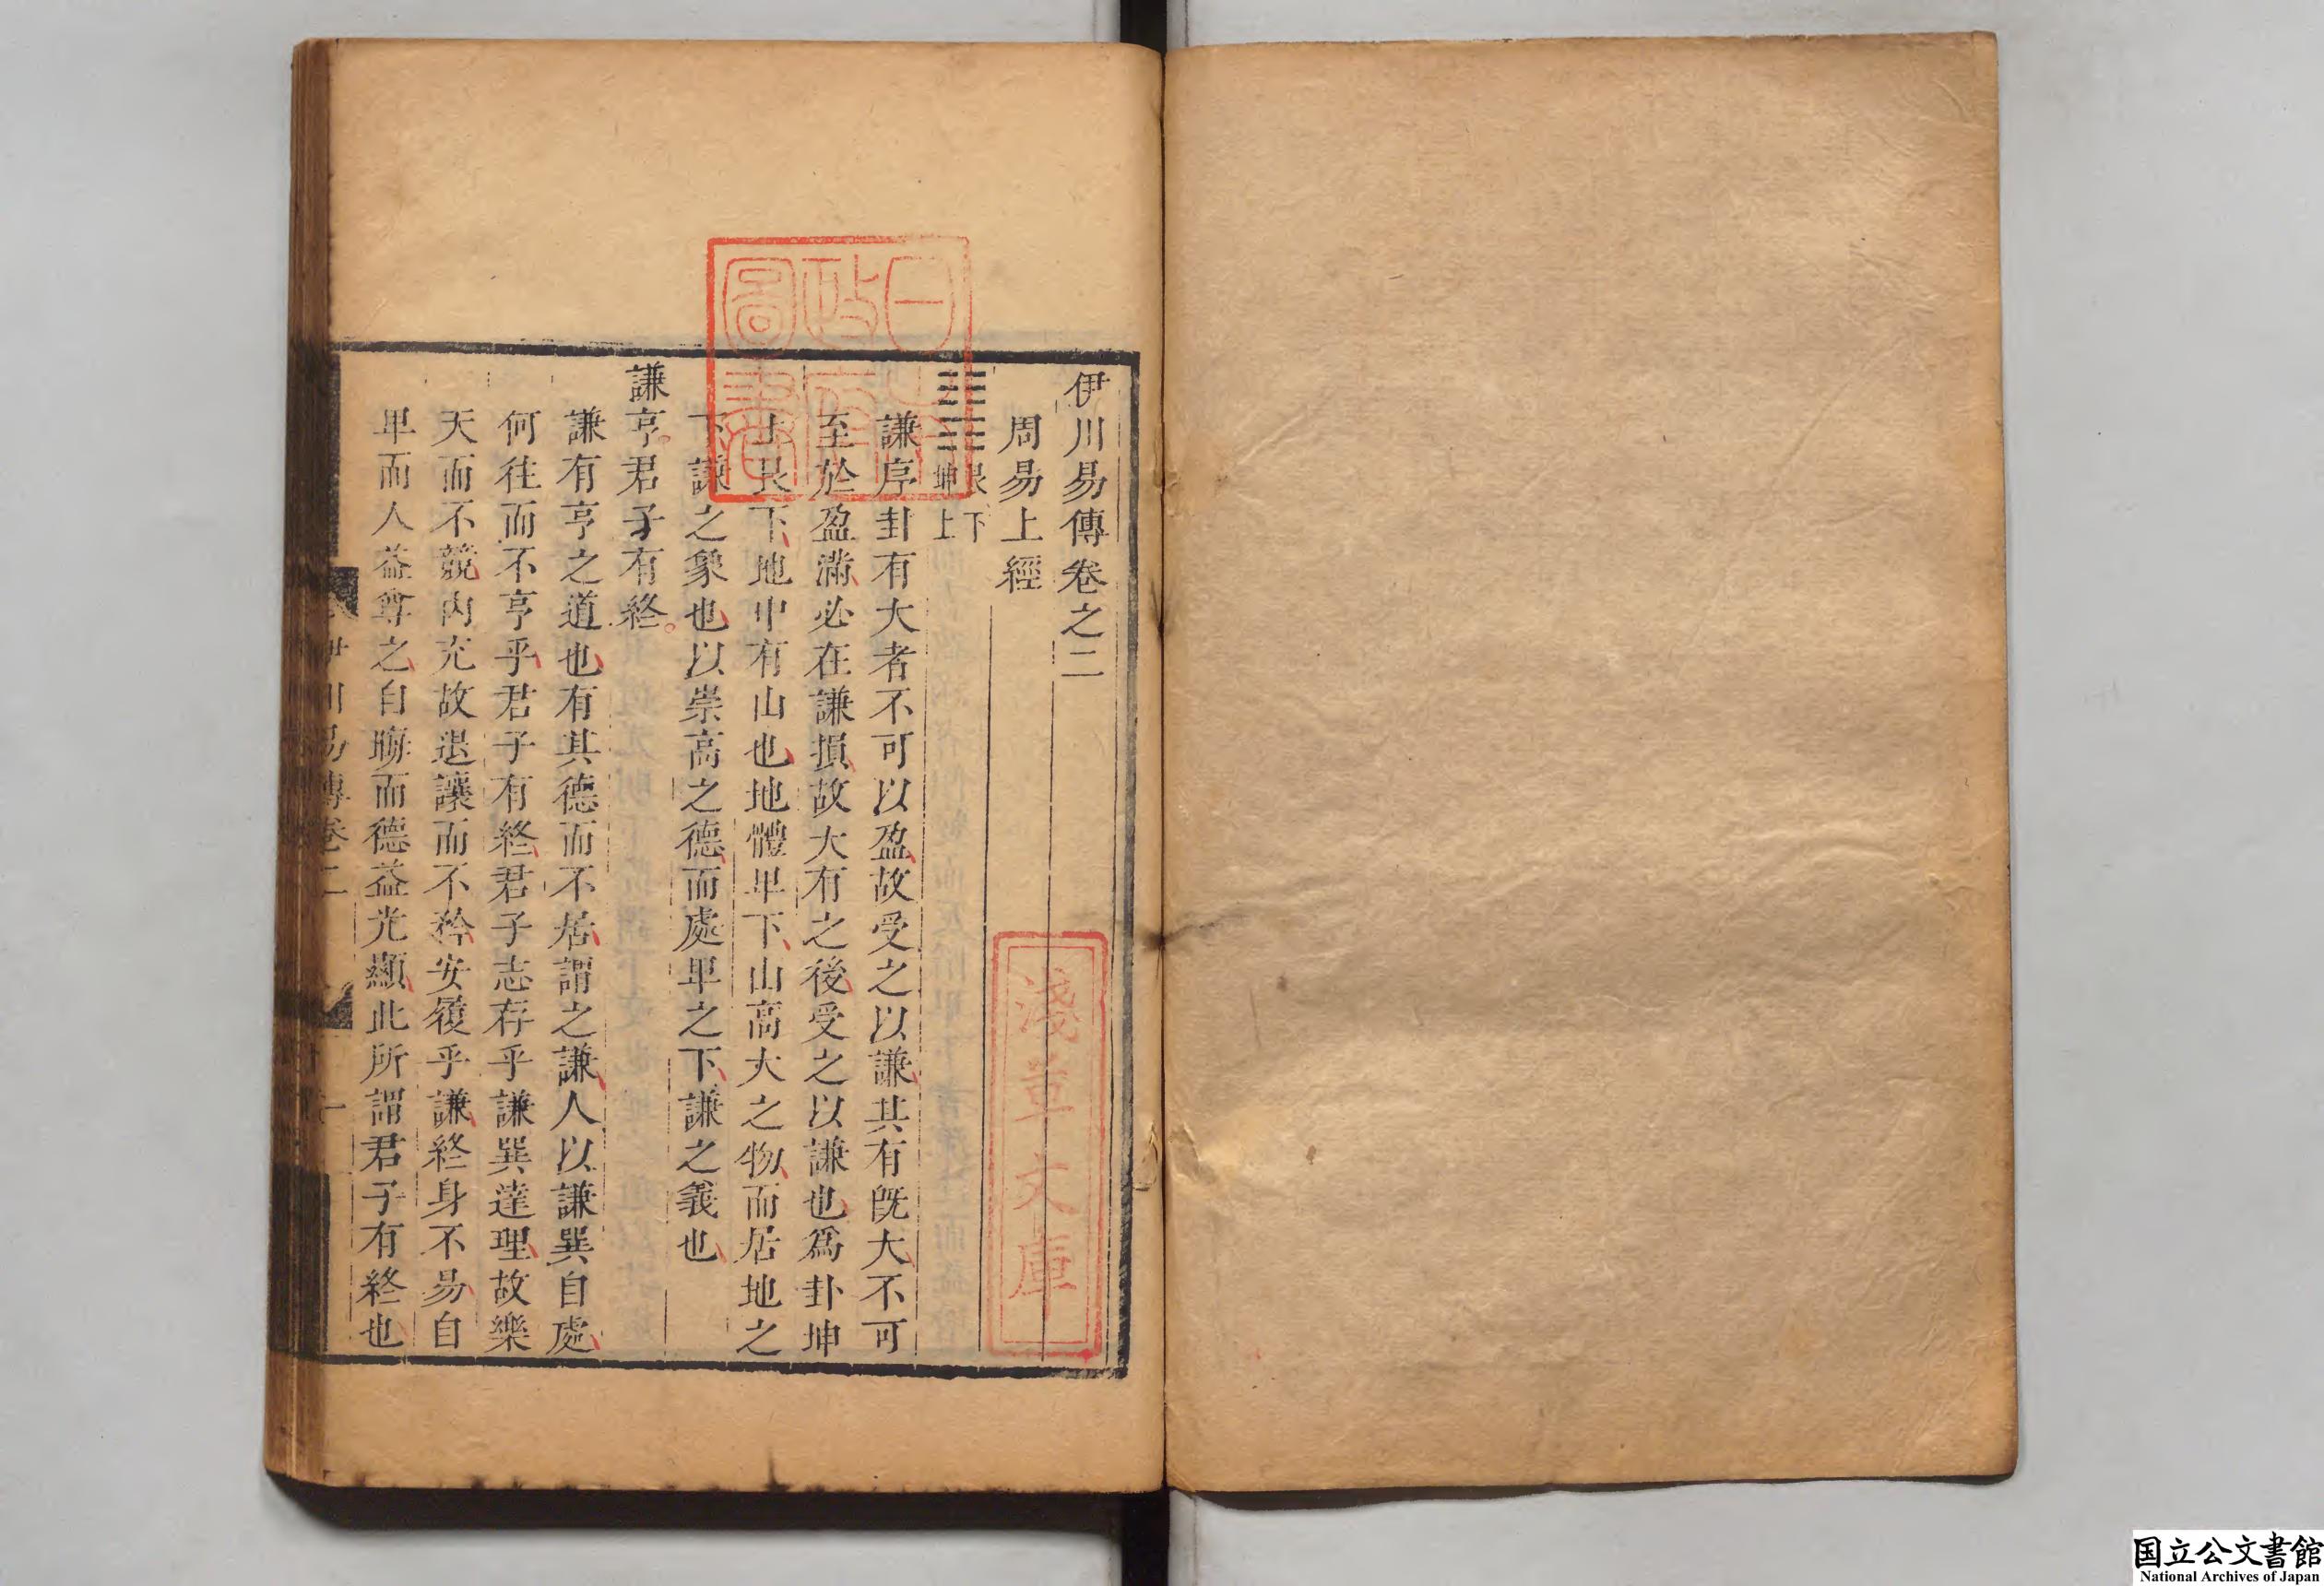 伊川易傳卷之二
周易上經
艮下
坤上
謙序卦有大者不可以盈故受之以謙其有旣大不可
至於盈滿必在謙損故大有之後受之以謙也爲卦坤
上艮下地中有山也地體卑下山高大之物而居地之
下謙之象也以崇高之德而處卑之下謙之義也
謙亨君子有終
謙有亨之道也有其德而不居謂之謙人以謙巽自處
何往而不亨乎君子有終君子志存乎謙巽達理故樂
天而不競內充故退讓而不矜安履乎謙終身不易自
卑而人益尊之自晦而德益光顯此所謂君子有終也
伊川易傳卷二
一
日本政府圖書
淺草文庫
国立公文書館
National Archives of Japan